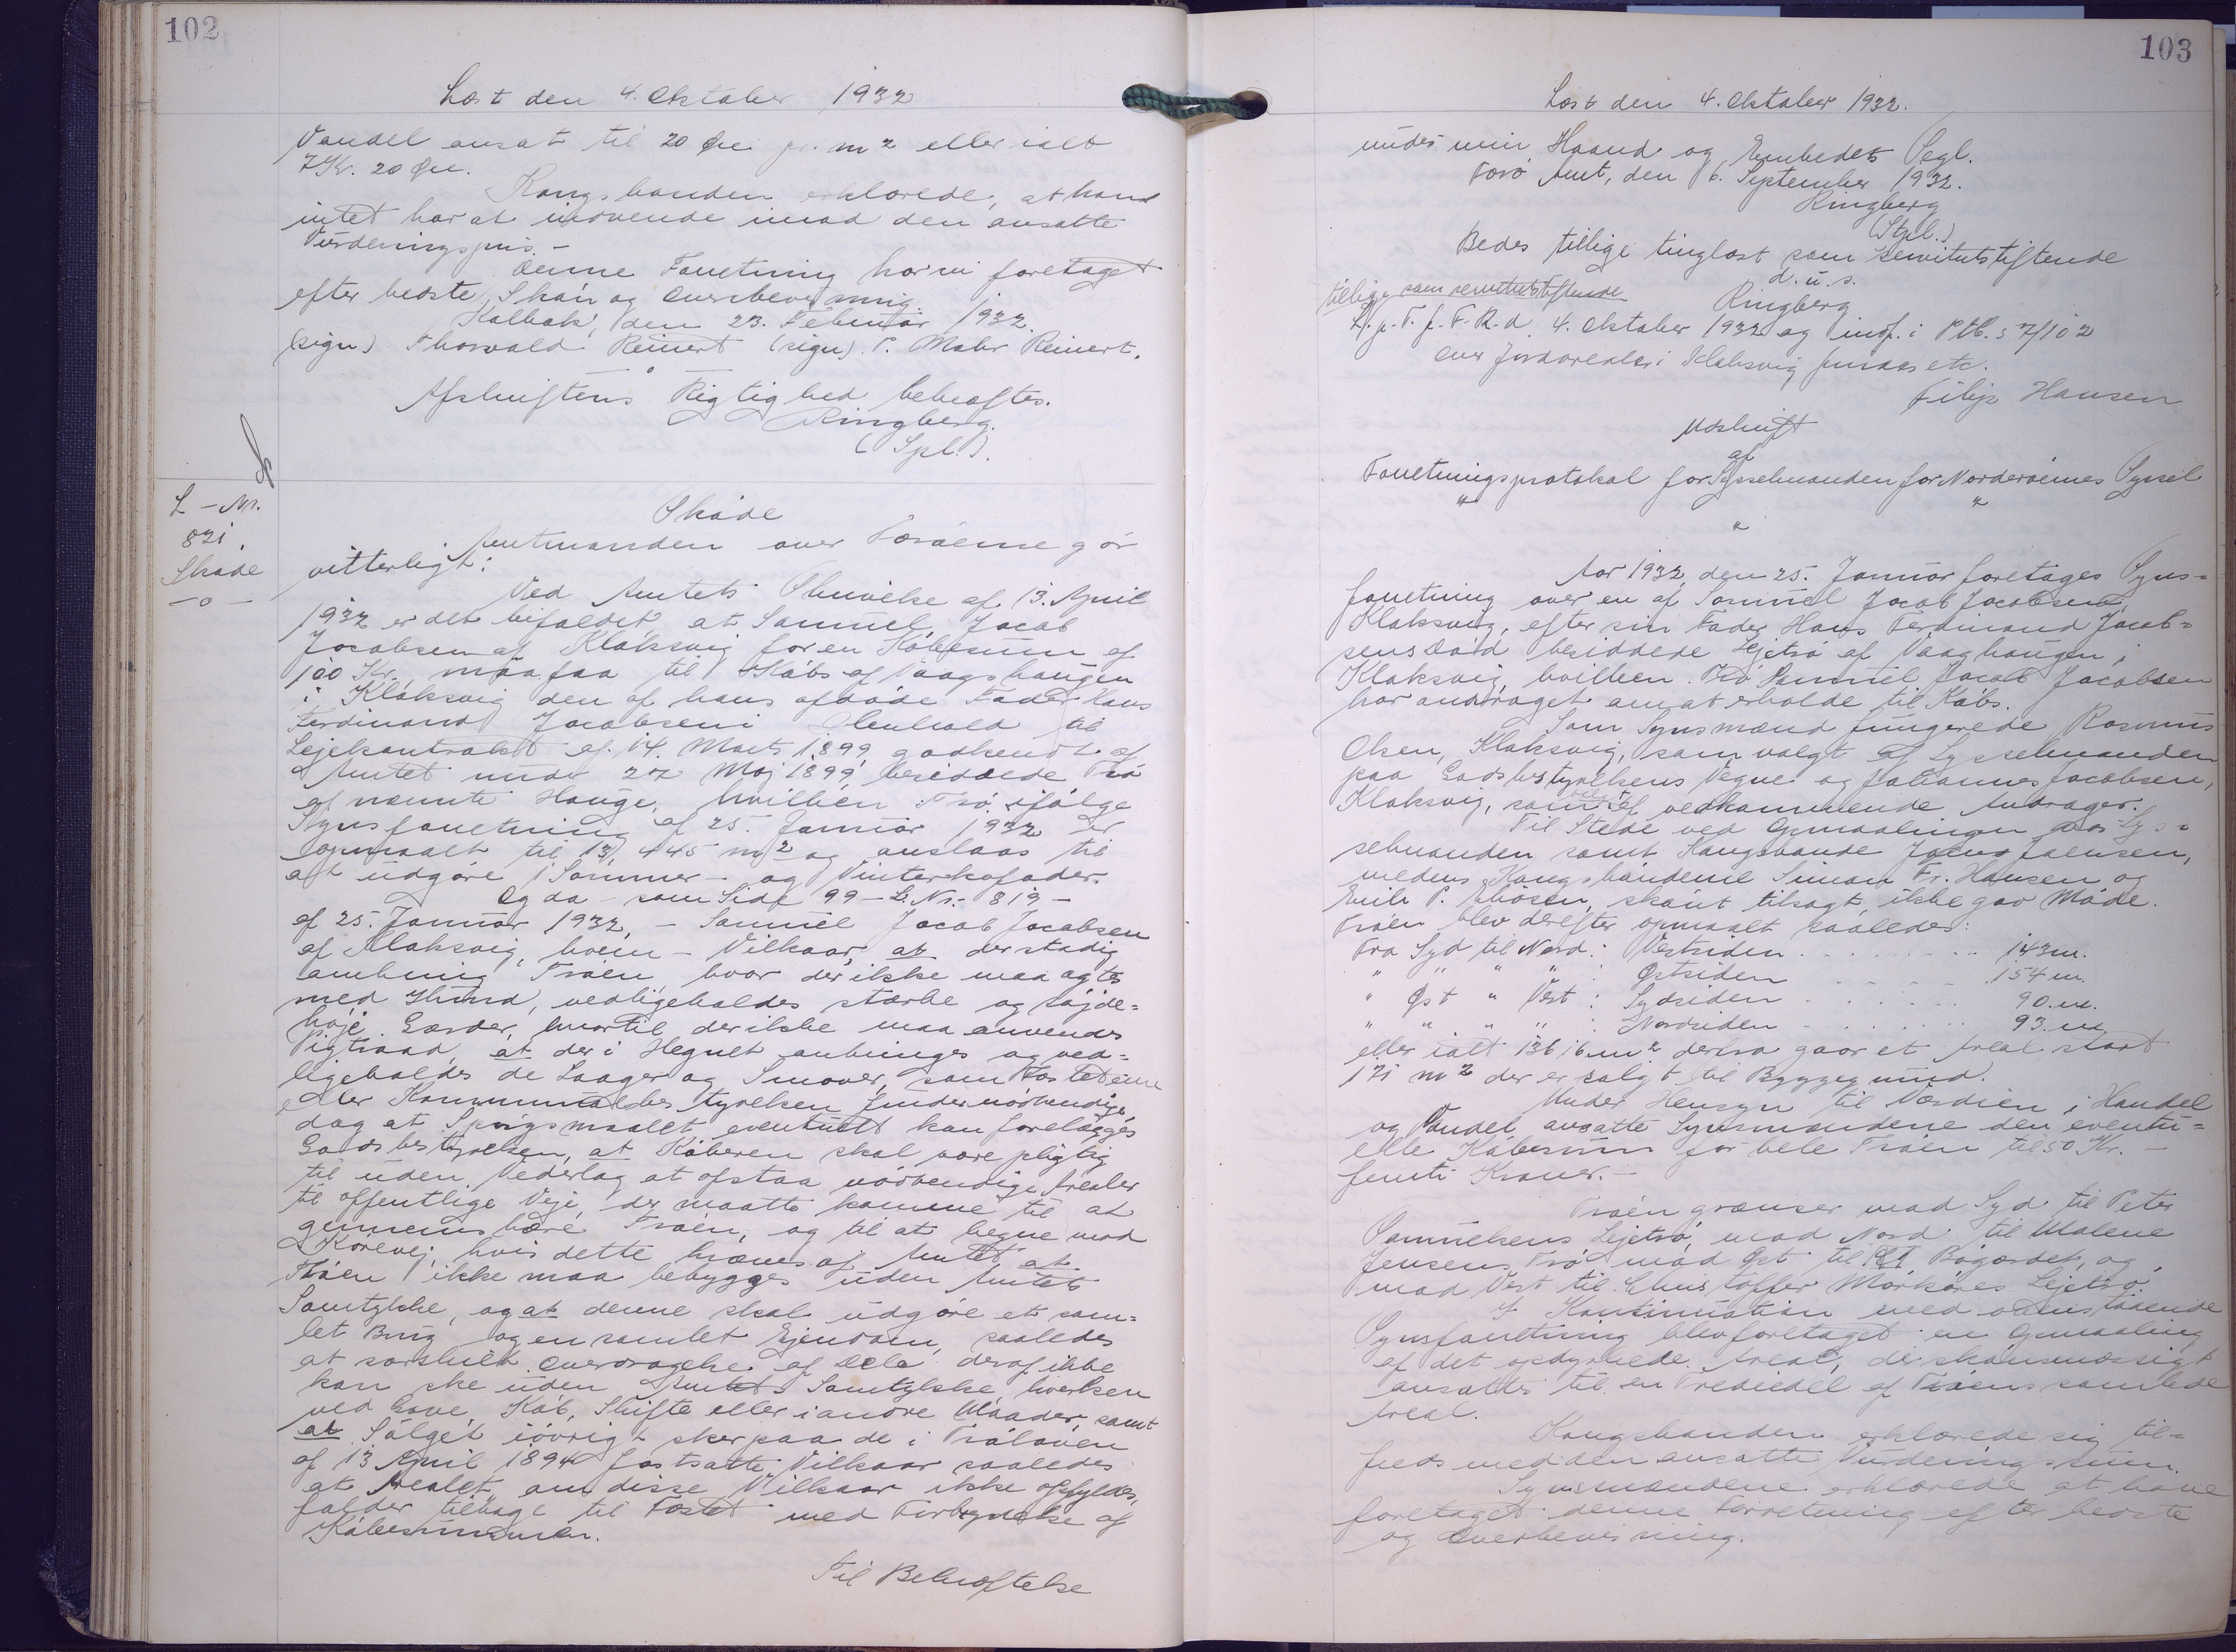 102
Læst den 4. Oktober 1932
Vandel ansat til 20 Øre pr. m2 eller ialt
7 Kr. 20 Øre.
Kongsbonden erklærede, at han
intet har at indvende imod den ansatte
Vurderingspris. -
Denne Forretning har vi foretaget
efter bedste Skön og Overbevisning.
Kalbak, den 23. Februar 1932.
(sign) Thorvald Reinert (sign). P. Mohr Reinert.
Afskriftens Rigtighed bekræftes.
Ringberg.
(Spl.).
L - Nr.
821.
Sköde
-o-
Sköde
Amtmanden over Færöerne gör
vitterligt:
Ved Amtets Skrivelse af 13. April
1932 er det bifaldet at Samuel Jacob
Jacobsen af Klaksvig for en Köbesum af
100 Kr. maa faa til Köbs af Vaagshaugen
i Klaksvig den af hans afdöde Fader Hans
Ferdinand Jacobsen i Henhold til
Lejekontrakt af 14. Marts 1899, godkendt af
Amtet under 27 Maj 1899, besiddede Trö
af nævnte Hauge, hvilken Trö ifölge
Synsforretning af 25. Januar 1932 er
opmaalt til 13,445 m2 og anslaas til
at udgöre 1 Sommer- og Vinterkofoder.
Og da - som Side 99 - L. Nr. - 819 -
af 25. Januar 1932, - Samuel Jacob Jacobsen
af Klaksvig, hvem - Vilkaar, at der stadig
omkring Tröen, hvor der ikke maa ogtes
med Hund, vedligeholdes stærke og töjde-
höje Gærder, hvortil der ikke maa anvendes
Pigtraad, at der i Hegnet anbringes og ved-
ligeholdes de Laager og Smover, som Fæsterne
eller Kommunalbestyrelsen finder nödvendige,
dog at Spörgsmaalet eventuelt kan forelægges
Godsbestyrelsen, at Köberen skal være pligtig
til uden Vederlag at afstaa nödvendige Arealer
til offentlige Veje, der maatte komme til at
gennemskære Tröen, og til at hegne mod
Körevej, hvis dette kræves af Amtet, at
Tröen ikke maa bebygges uden Amtets
Samtykke, og at denne skal udgöre et sam-
let Brug og en samlet Ejendom, saaledes
at særskilt Overdragelse af Dele deraf ikke
kan ske uden Amtets Samtykke, hverken
ved Gave, Köb, Skifte eller i andre Maader, samt
at Salget iövrigt sker paa de i Trölaven
af 13 April 1894 fastsatte Vilkaar saaledes
at Arealet, om disse Vilkaar ikke opfyldes,
falder tilbage til Fæstet med Fortrydelse af
Köbesummen.
Til Bekræftelse
103
Læst den 4. Oktober 1932.
under min Haand og Embedets Segl.
Færö Amt, den 6. September 1932.
Ringberg
(Spl.)
Bedes tillige tinglæst som servitutstiftende
d. u. s.
Ringberg
tillige som servitutstiftende
L. p. T. f. F. R. d. 4. Oktober 1932 og indf. i Ptb. s 7/102
over Jordarealer i Klaksvig findes etc.
Filip Hansen
Udskrift
af
Forretningsprotokol for Sysselmanden for Norderöernes Syssel
" "
"
Aar 1932, den 25. Januar foretages Syns-
forretning over en af Samuel Jacob Jacobsen,
Klaksvig, efter sin Fader Hans Ferdinand Jacob-
sens Död besiddede Lejetrö af Vaaghaugen i
Klaksvig, hvilken Trö Samuel Jacob Jacobsen
har andraget om at erholde til Köbs.
Som Synsmænd fungerede Rasmus
Olsen, Klaksvig, som valgt af Sysselmanden
paa Godsbestyrelsens Vegne og Johannes Jacobsen,
Klaksvig, som valgt af vedkommende Andrager.
Til Stede ved Opmaalingen var Sys-
selmanden samt Kongsbonde Joens Joensen,
medens Kongsbönderne Simon Fr. Hansen og
Emil P. Eliösen, skönt tilsagt, ikke gav Möde.
Tröen blev derefter opmaalt saaledes:
Fra Syd til Nord: Vestsiden . . . . . . . . . 143 m.
" " " " : Östsiden . . . . . . . 154 m.
" Öst " Vest : Sydsiden . . . . . . . 90. m.
" " " " : Nordsiden . . . . . . . 93. m.
eller ialt 13616 m2 derfra gaar et Areal stort
171 m2 der er solgt til Byggegrund.
Under Hensyn til Værdien i Handel
og Vandel ansatte Synsmændene den eventu-
elle Köbesum for hele Tröen til 50 Kr. -
femti Kroner. -
Tröen grænser mod Syd til Peter
Samuelsens Lejetrö, mod Nord til Malene
Jensens Trö mod Öst til Bögærdet, og
mod Vest til Christoffer Mörköres Lejetrö.
I Kontinuation med ovenstaaende
Synsforretning blev foretaget en Opmaaling
af det opdyrkede Areal, der skönsmæssigt
ansattes til en Trediedel af Tröens samlede
Areal.
Kongsbonden erklærede sig til-
freds med den ansatte Vurderingssum.
Synsmændene erklærede at have
foretaget denne Forretning efter bedste
og Overbevisning.